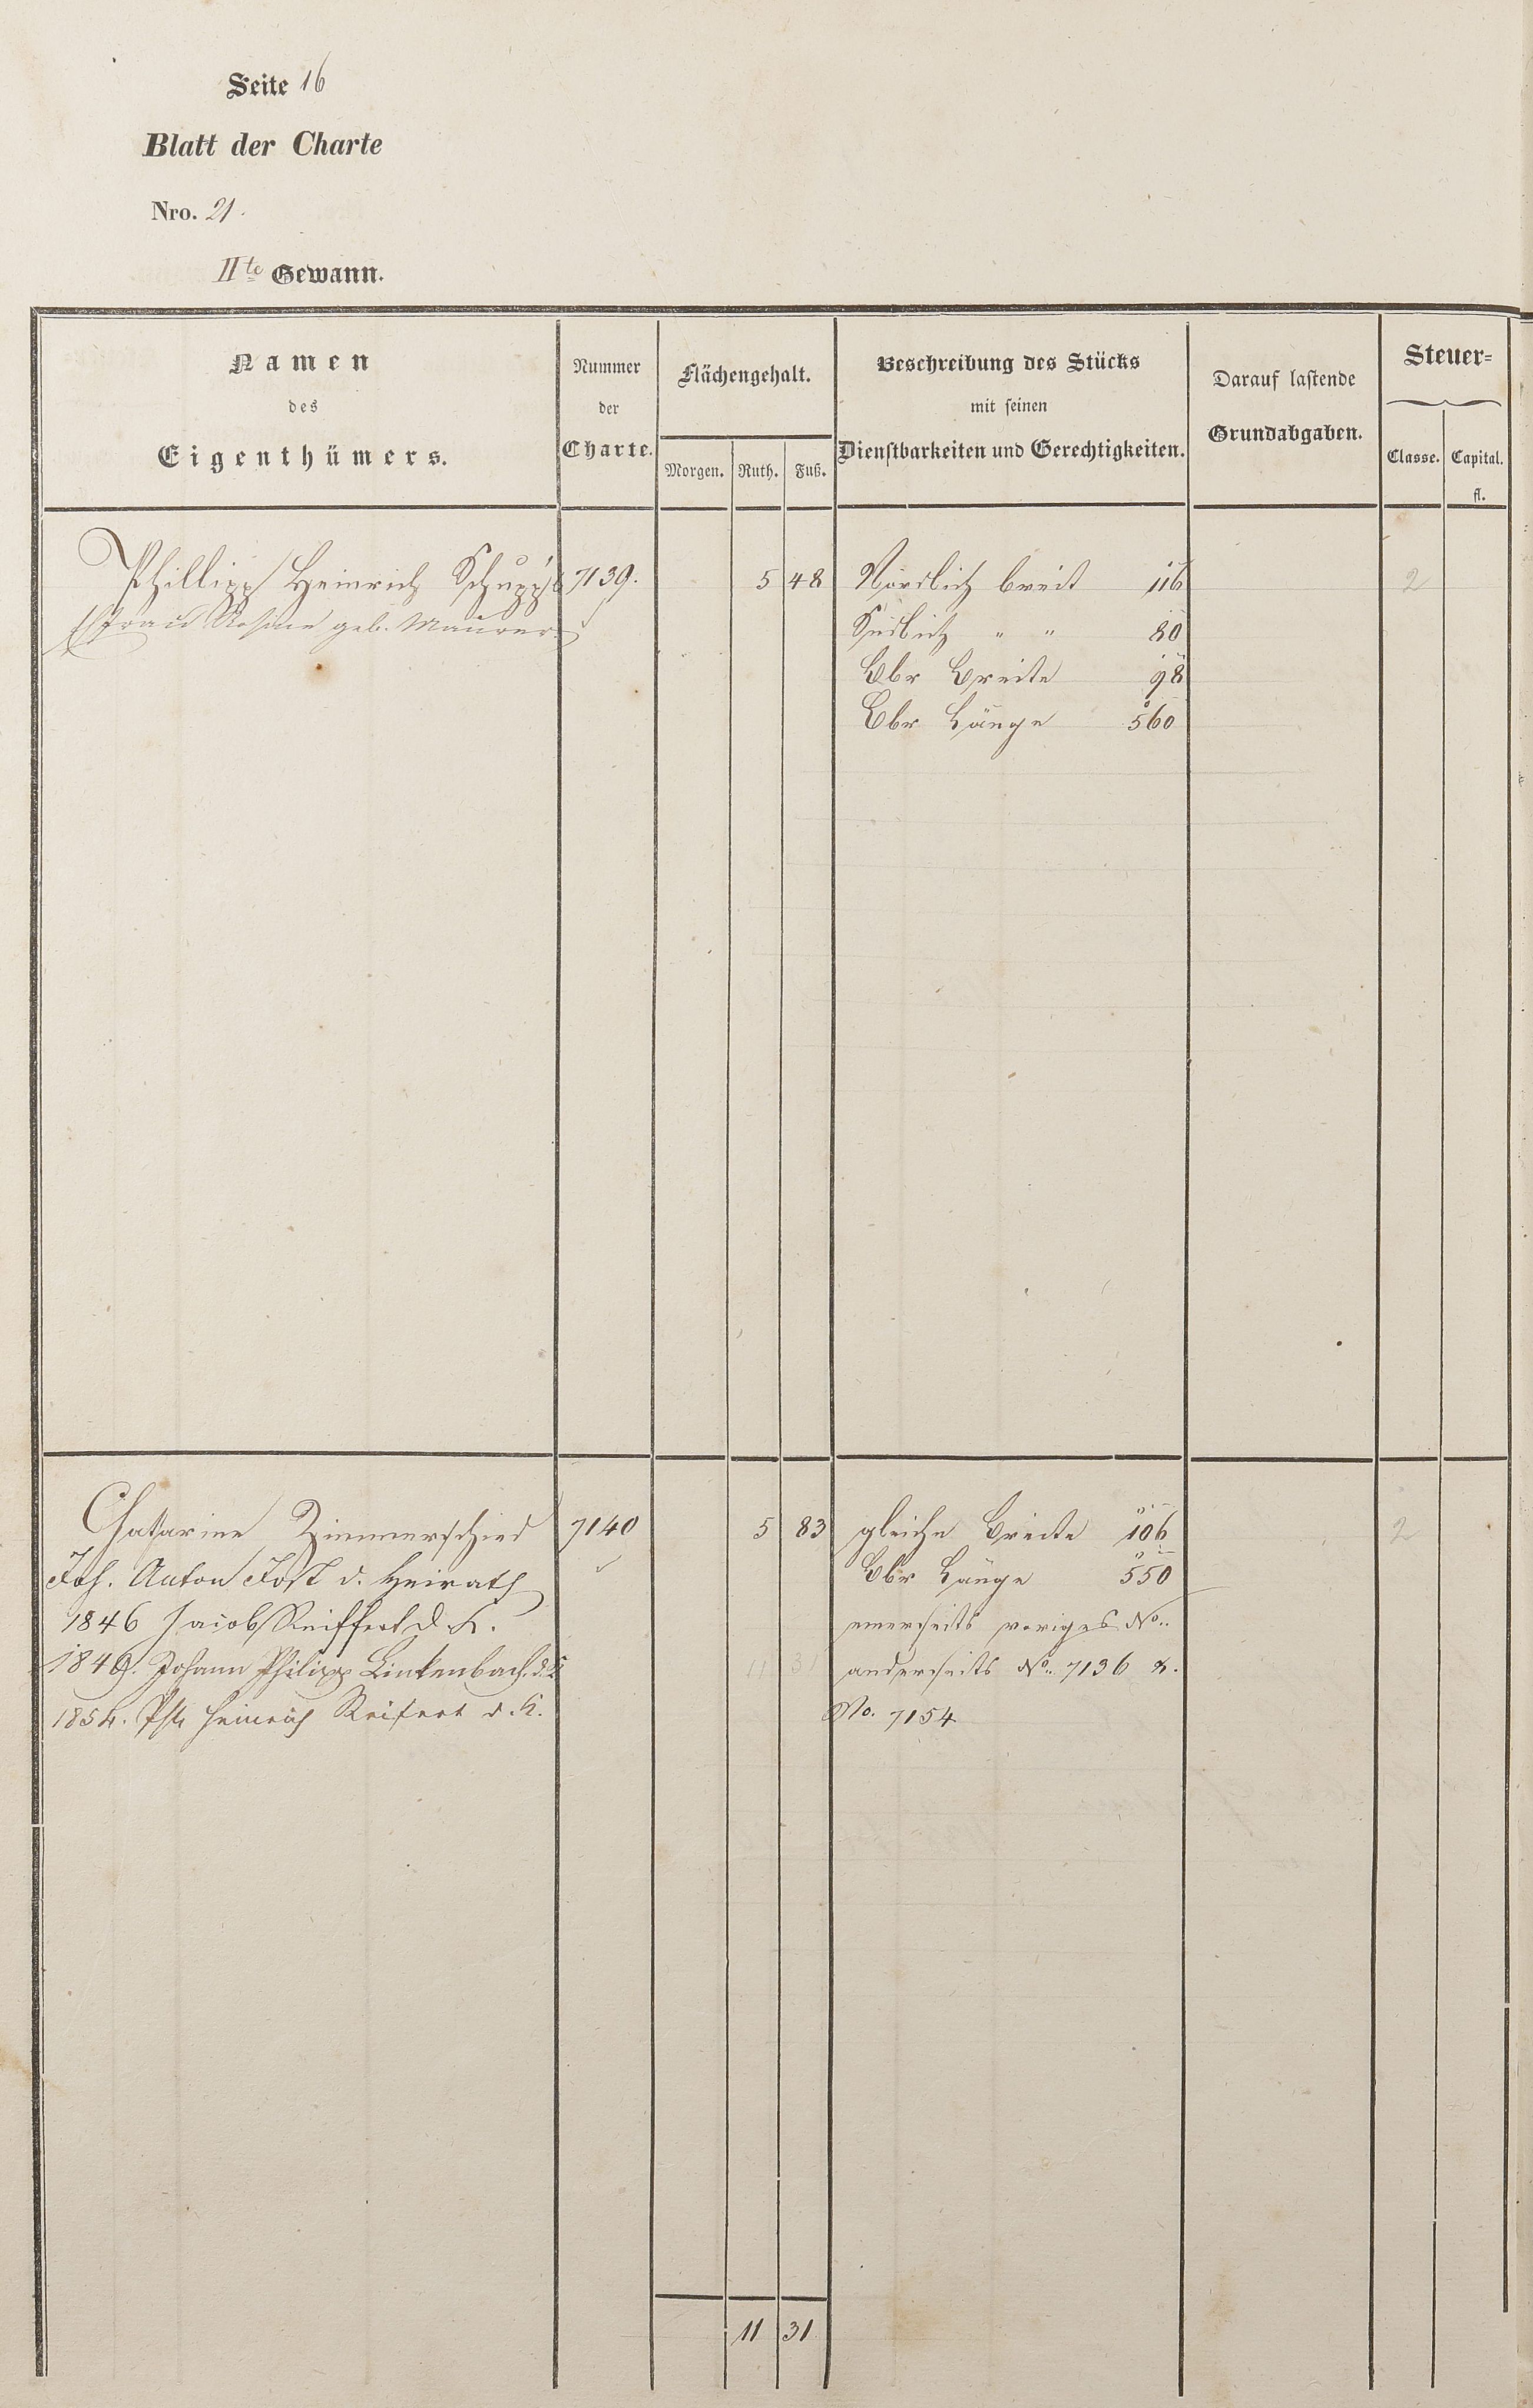 Seite 16
Blatt der Charte
Nro. 21.
IIte Gewann.
Namen
des
Eigenthümers.
Nummer
der
Charte.
Flächengehalt.
Morgen. Ruth. Fuß.
Beschreibung des Stücks
mit seinen
Dienstbarkeiten und Gerechtigkeiten.
Darauf lastende
Grundabgaben.
Steuer=
Classe. Capital.
fl.
Phillipp Heinrich Schupp's 7139. 5 48 Nördlich breit 116 2
Frau Rosine geb. Maurer Südlich " " 80
Obr Breite 98
Obr Länge 560
Chatarine Zimmerschied 7140 5 83 gleiche Breite 106 2
Joh. Anton Jost d. Heirath Obr Länge 550
1846 Jacob Reiffert d. K. einerseits voriges No.
1849. Johann Philipp Linkenbach d. K. 11 31 anderseits No. 7136 &.
1854. Ph. Heinrich Reifert d. K. No. 7154
11 31